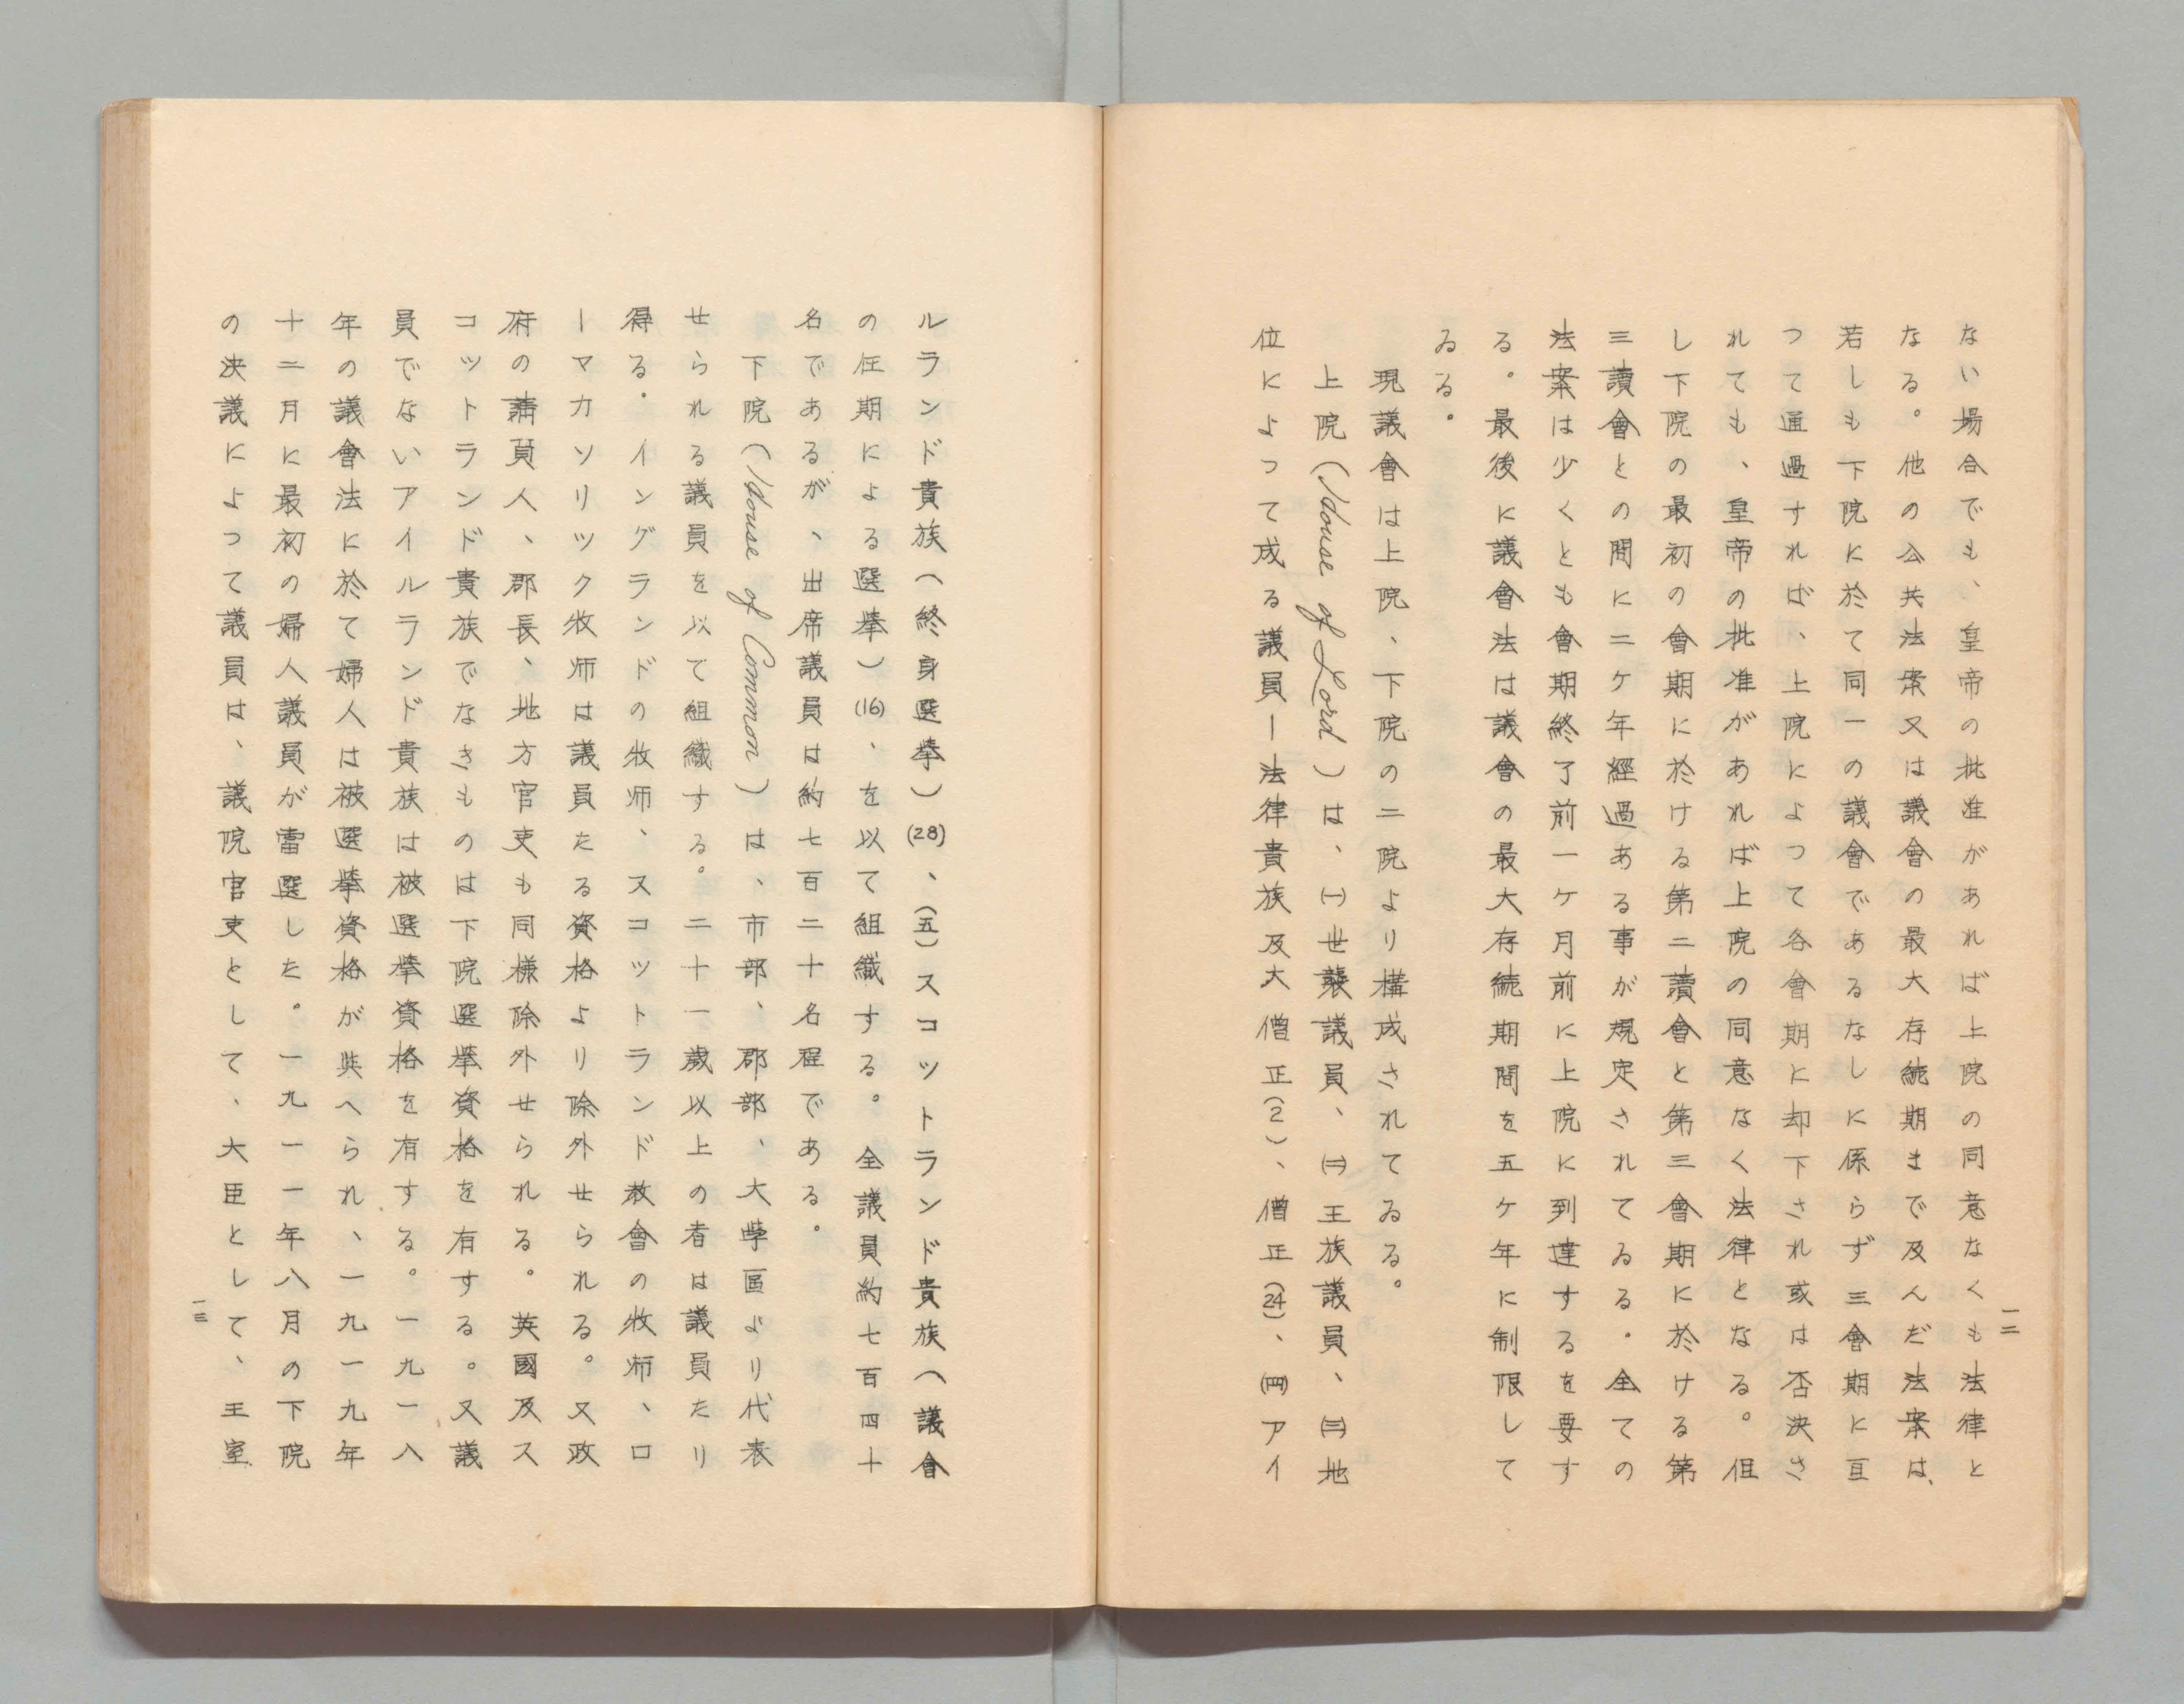 ない場合でも、皇帝の批准があれば上院の同意なくも法律と
なる。他の公共法案又は議會の最大存続期まで及んだ法案は、
若しも下院に於て同一の議會であるなしに係らず三會期に亘
つて通過すれば、上院によつて各會期に却下され或は否決さ
れても、皇帝の批准があれば上院の同意なく法律となる。但
し下院の最初の會期に於ける第二讀會と第三會期に於ける第
三讀會との間に二ケ年經過ある事が規定されてゐる。全ての
法案は少くとも會期終了前一ケ月前に上院に到達するを要す
る。最後に議會法は議會の最大存続期間を五ケ年に制限して
ゐる。
現議會は上院、下院の二院より構成されてゐる。
上院(House of Lord)は、㈠世襲議員、㈡王族議員、㈢地
位によって成る議員ー法律貴族及大僧正(2)、僧正(24)、㈣アイ
一二
ルランド貴族(終身選挙)(28)、(五)スコットランド貴族(議會
の任期による選挙)(16)、を以て組織する。全議員約七百四十
名であるが、出席議員は約七百二十名程である。
下院(House of Common)は、市部、郡部、大學區より代表
せられる議員を以て組織する。二十一歳以上の者は議員たり
得る。イングランドの牧師、スコットランド教會の牧師、ロ
ーマカソリック牧師は議員たる資格より除外せられる。又政
府の請員人、郡長、地方官吏も同様除外せられる。英國及ス
コットランド貴族でなきものは下院選挙資格を有する。又議
員でないアイルランド貴族は被選挙資格を有する。一九一八
年の議會法に於て婦人は被選挙資格が與へられ、一九一九年
十二月に最初の婦人議員が當選した。一九一一年八月の下院
の決議によって議員は、議院官吏として、大臣として、王室
一三